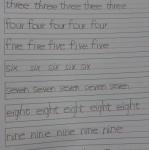 three three three three three
four four four four four
five five five five five
six six six six six
seven seven seven seven seven
eight eight eight eight eight
nine nine nine nine nine